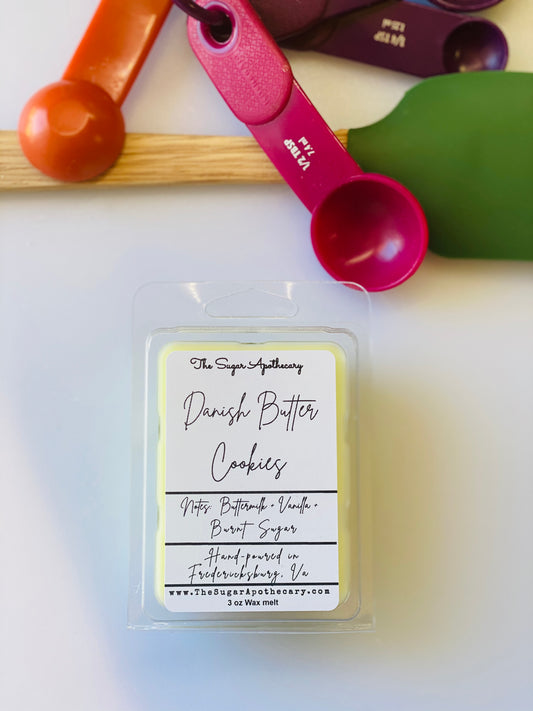 1/4 TSP
1/2 TBSP
7.4 ml
The Sugar Apothecary
Danish Butter
Cookies
Notes: Buttermilk + Vanilla +
Burnt Sugar
Hand-poured in
Fredericksburg, Va
www.TheSugarApothecary.com
3 oz Wax melt